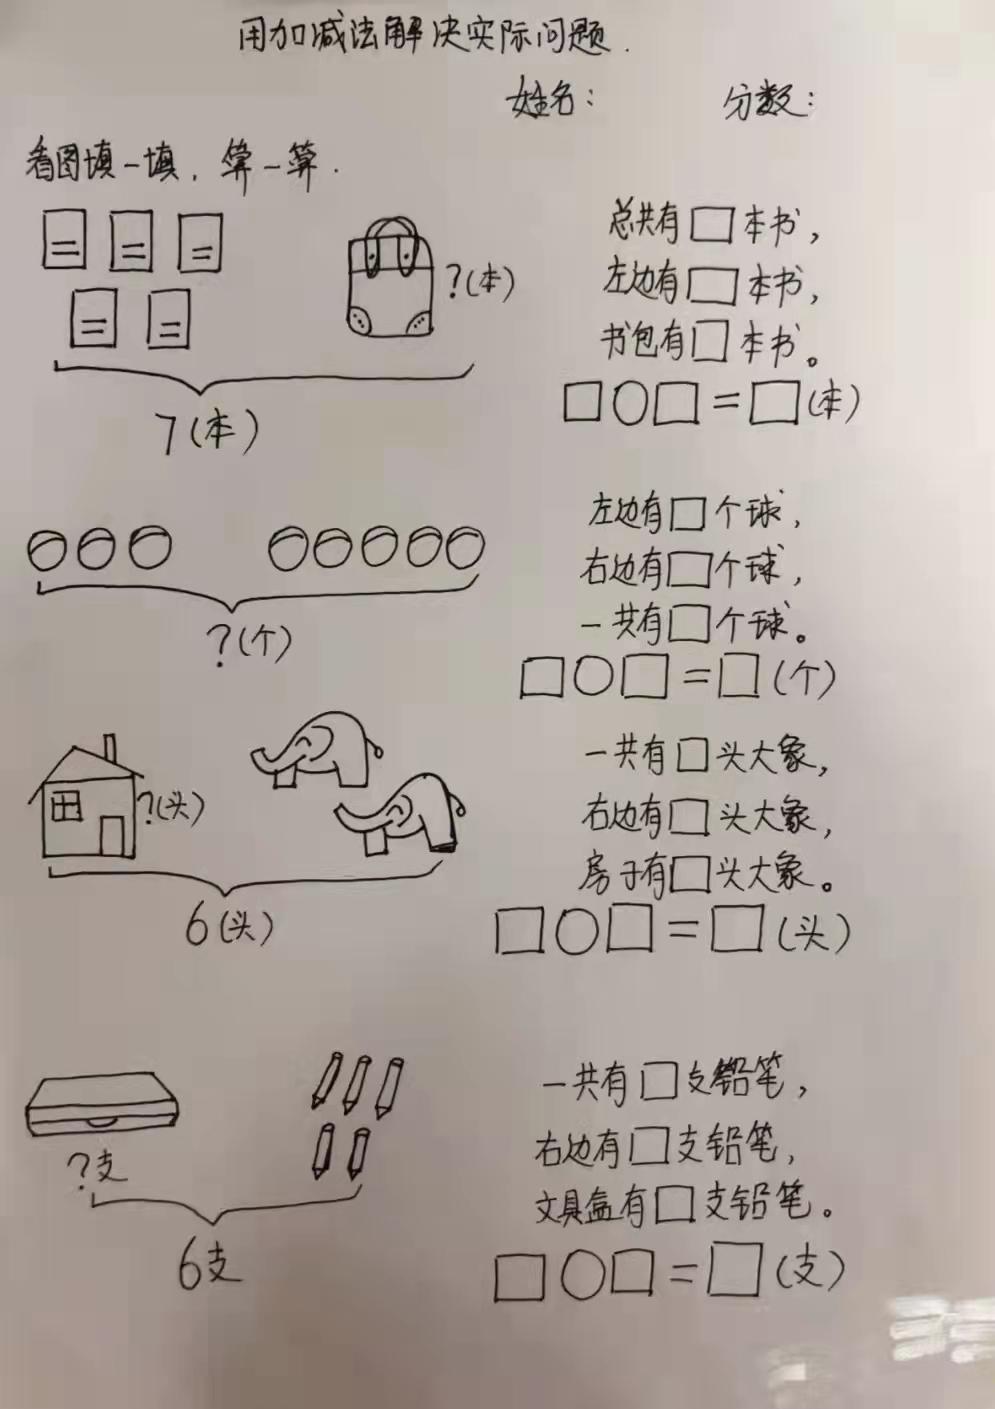 用加减法解决实际问题.
姓名： 分数：
看图填一填，算一算.
?(本)
7(本)
总共有□本书，
左边有□本书，
书包有□本书。
□○□=□(本)
?(个)
左边有□个球，
右边有□个球，
一共有□个球。
□○□=□(个)
?(头)
6(头)
一共有□头大象，
右边有□头大象，
房子有□头大象。
□○□=□(头)
?支
6支
一共有□支铅笔，
右边有□支铅笔，
文具盒有□支铅笔。
□○□=□(支)